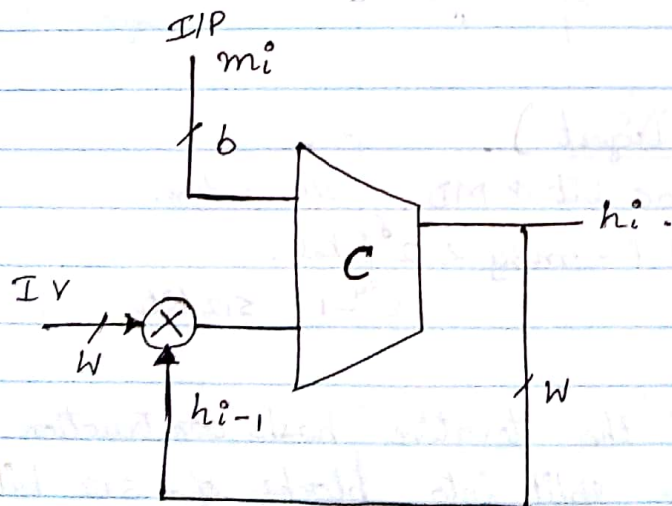 I/P
mi
b
C
hi.
IV
W
W
hi-1